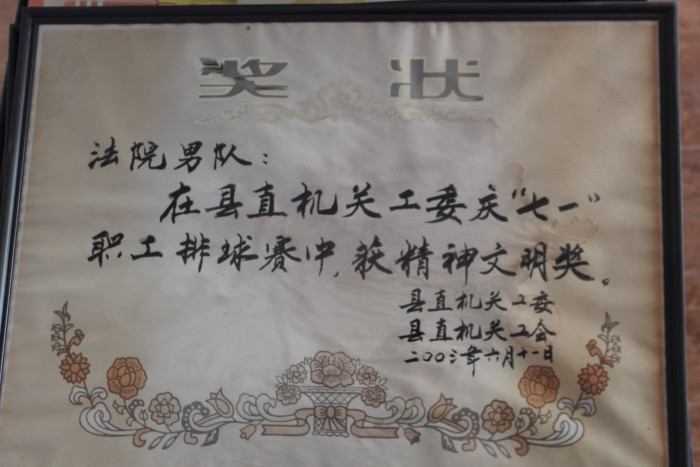 奖状
法院男队：
在县直机关工委庆"七一"
职工排球赛中，获精神文明奖。
县直机关工委
县直机关工会
二00三年六月十一日